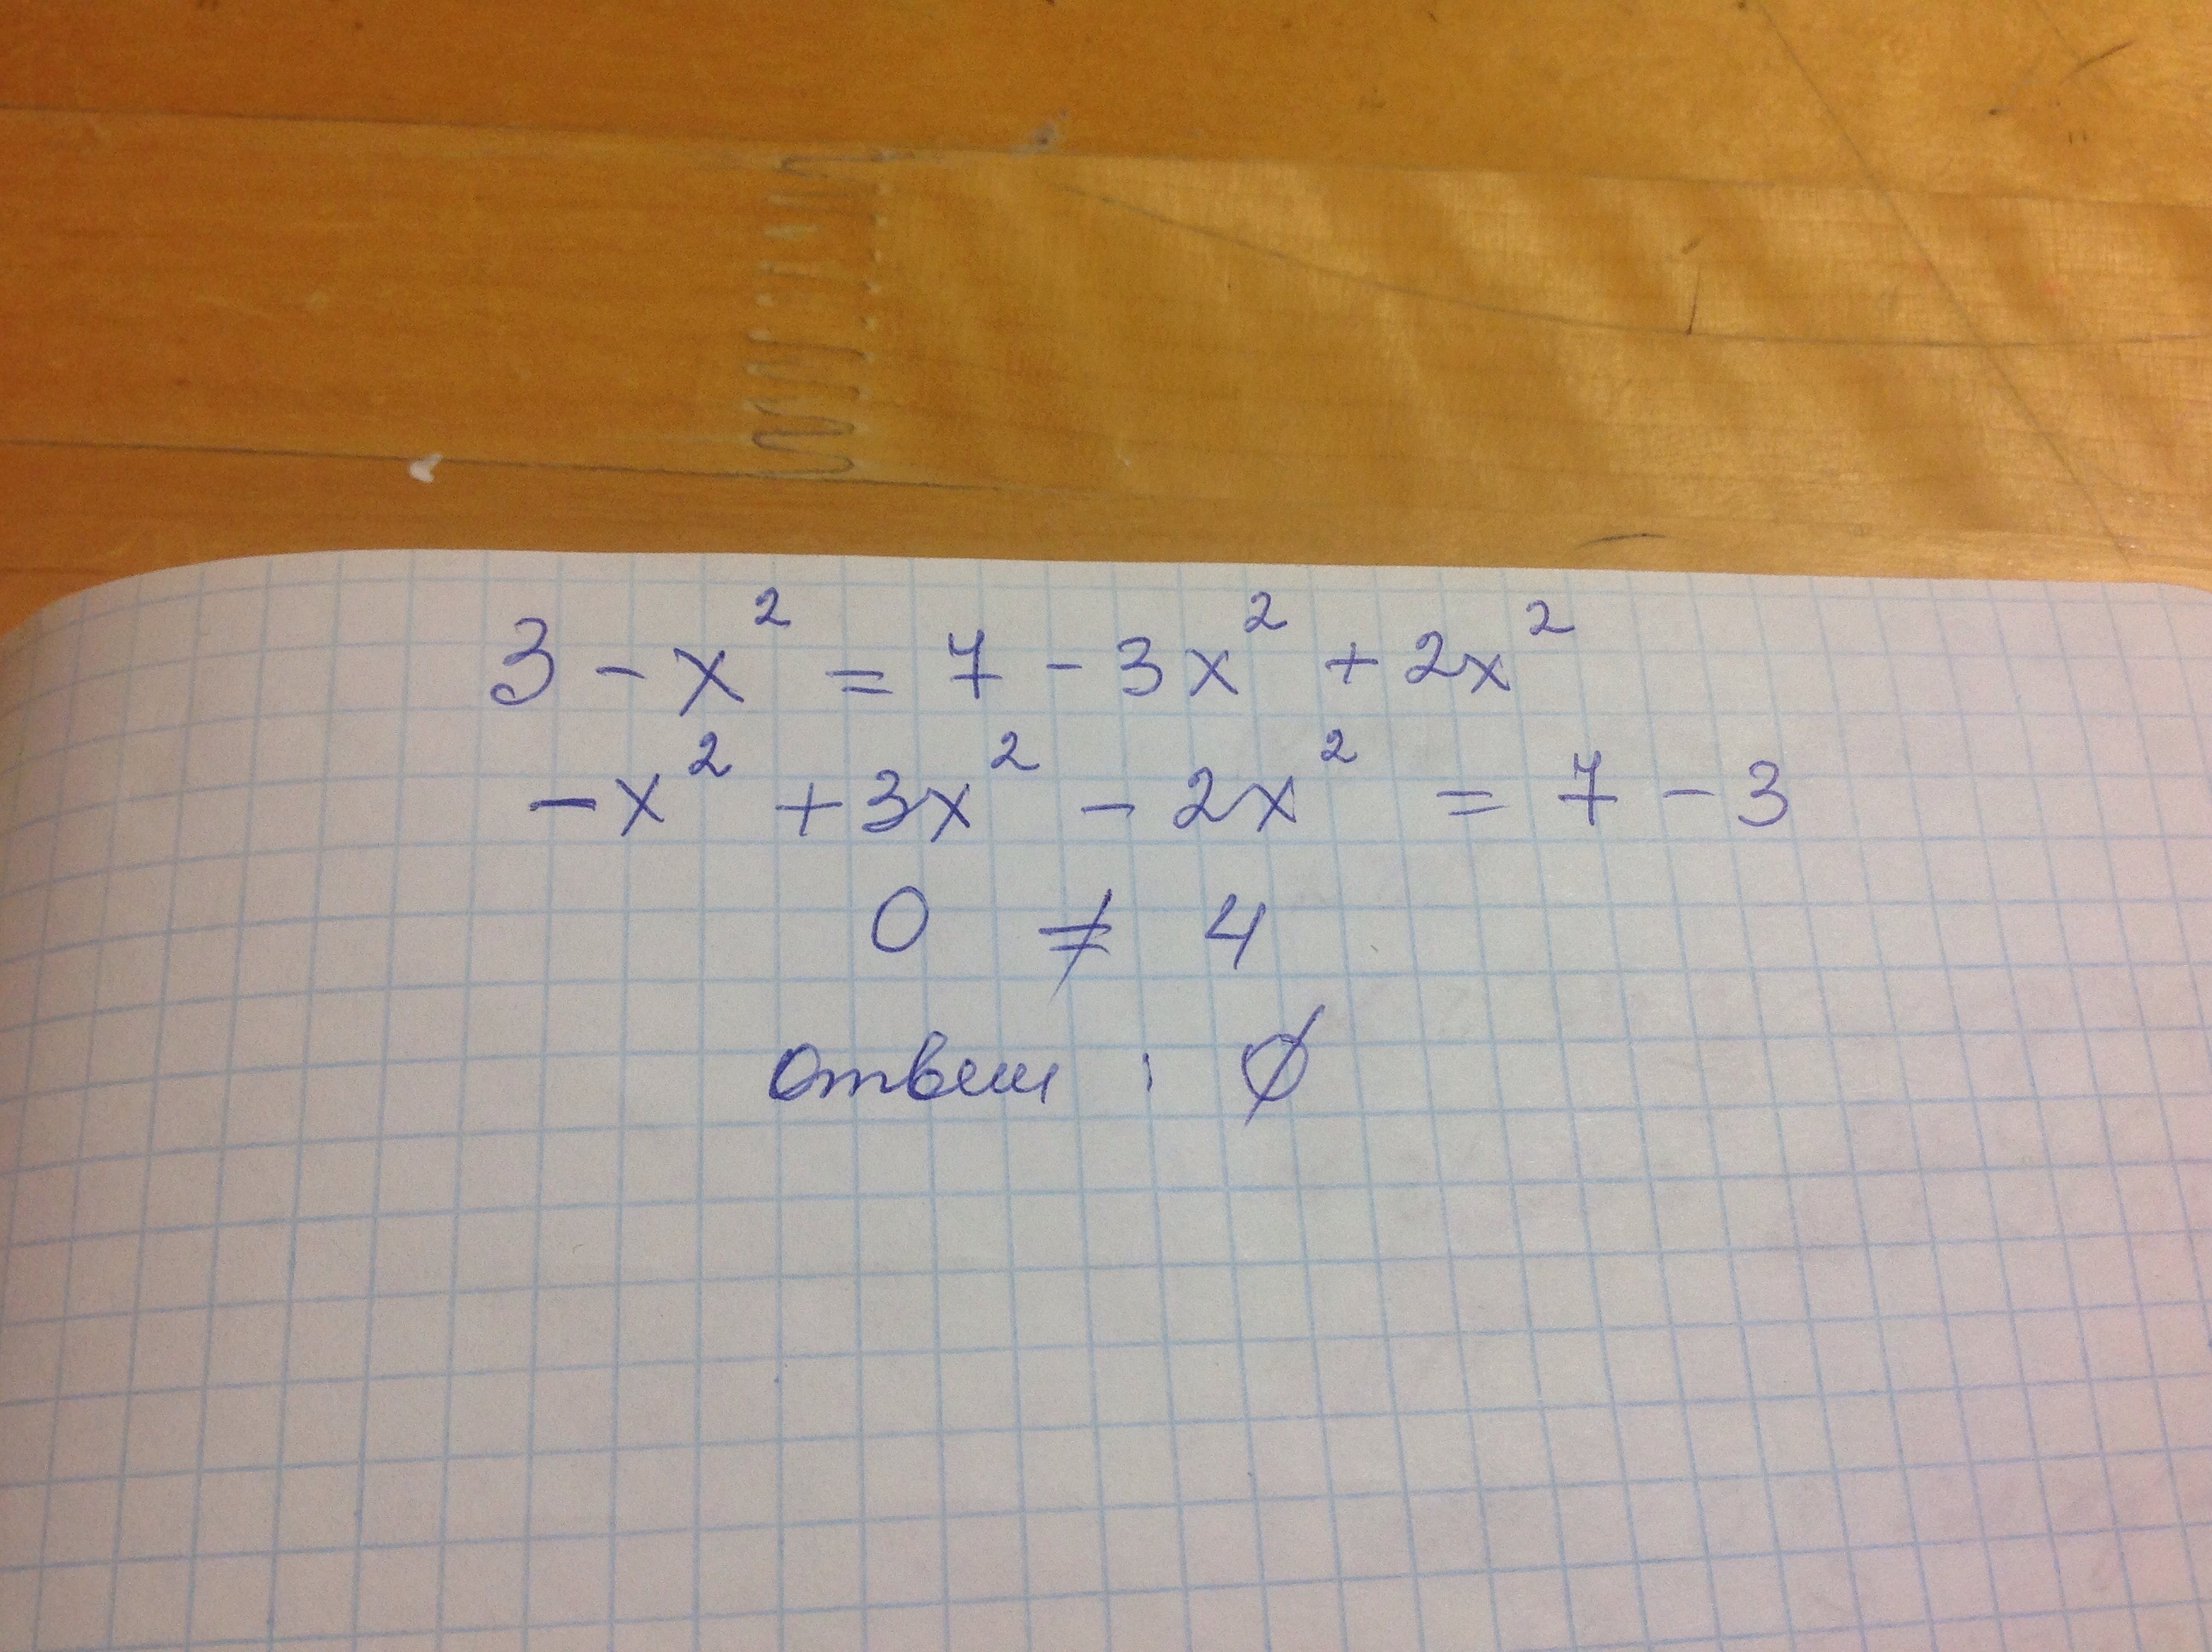 3 - x² = 7 - 3x² + 2x²
-x² + 3x² - 2x² = 7 - 3
0 ≠ 4
Ответ : ∅